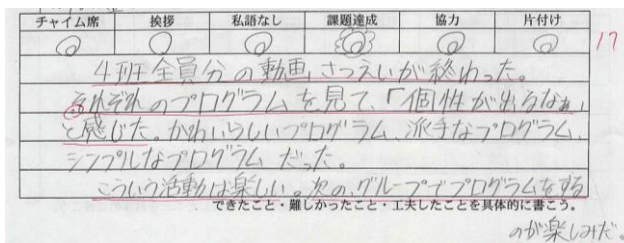 チャイム席 挨拶 私語なし 課題達成 協力 片付け
17
4班全員分の動画さつえいが終わった。
それぞれのプログラムを見て、「個性が出るなぁ」
と感じた。かわいらしいプログラム、派手なプログラム、
シンプルなプログラムだった。
こういう活動は楽しい。次の、グループでプログラムをする
できたこと・難しかったこと・工夫したことを具体的に書こう。
のが楽しみだ。